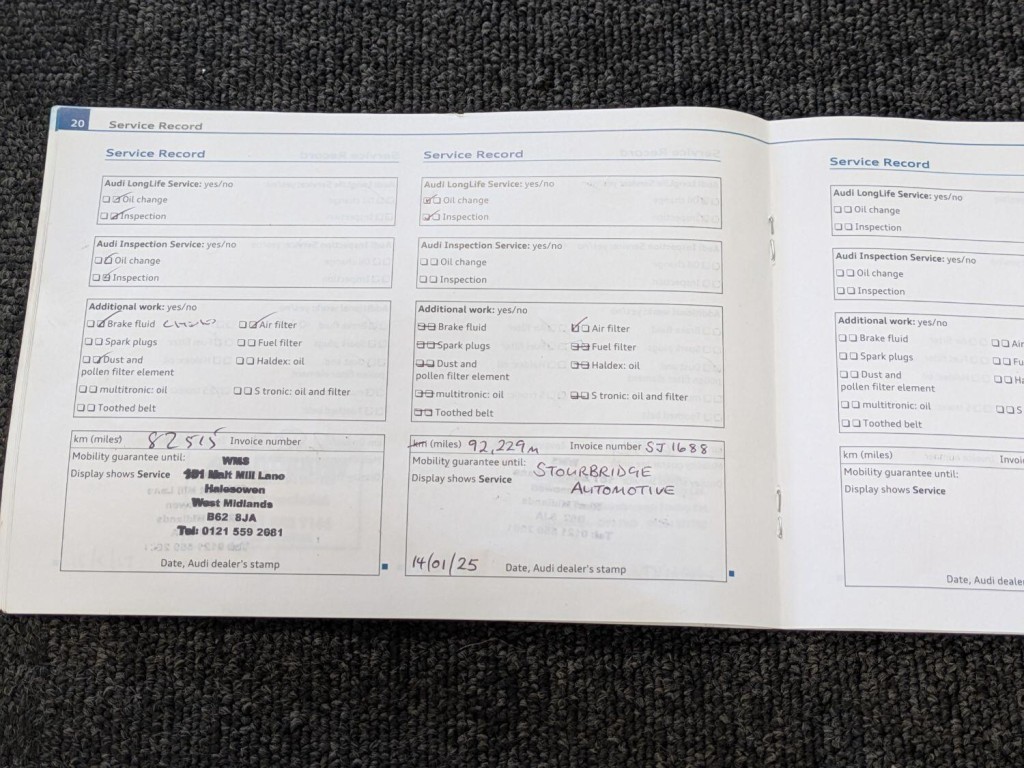 20 Service Record
Service Record
Audi LongLife Service: yes/no
Oil change
Inspection
Audi Inspection Service: yes/no
Oil change
Inspection
Additional work: yes/no
Brake fluid Air filter
Spark plugs Fuel filter
Dust and Haldex: oil
pollen filter element
multitronic: oil S tronic: oil and filter
Toothed belt
km (miles) 82515 Invoice number
Mobility guarantee until:
Display shows Service
WMS
101 Malt Mill Lane
Halesowen
West Midlands
B62 8JA
Tel: 0121 559 2681
Date, Audi dealer's stamp
Service Record
Audi LongLife Service: yes/no
Oil change
Inspection
Audi Inspection Service: yes/no
Oil change
Inspection
Additional work: yes/no
Brake fluid Air filter
Spark plugs Fuel filter
Dust and Haldex: oil
pollen filter element
multitronic: oil S tronic: oil and filter
Toothed belt
km (miles) 92,229m Invoice number SJ 1688
Mobility guarantee until: STOURBRIDGE
Display shows Service AUTOMOTIVE
14/01/25 Date, Audi dealer's stamp
Service Record
Audi LongLife Service: yes/no
Oil change
Inspection
Audi Inspection Service: yes/no
Oil change
Inspection
Additional work: yes/no
Brake fluid Air
Spark plugs Fu
Dust and Ha
pollen filter element
multitronic: oil S
Toothed belt
km (miles) Invoi
Mobility guarantee until:
Display shows Service
Date, Audi dealer